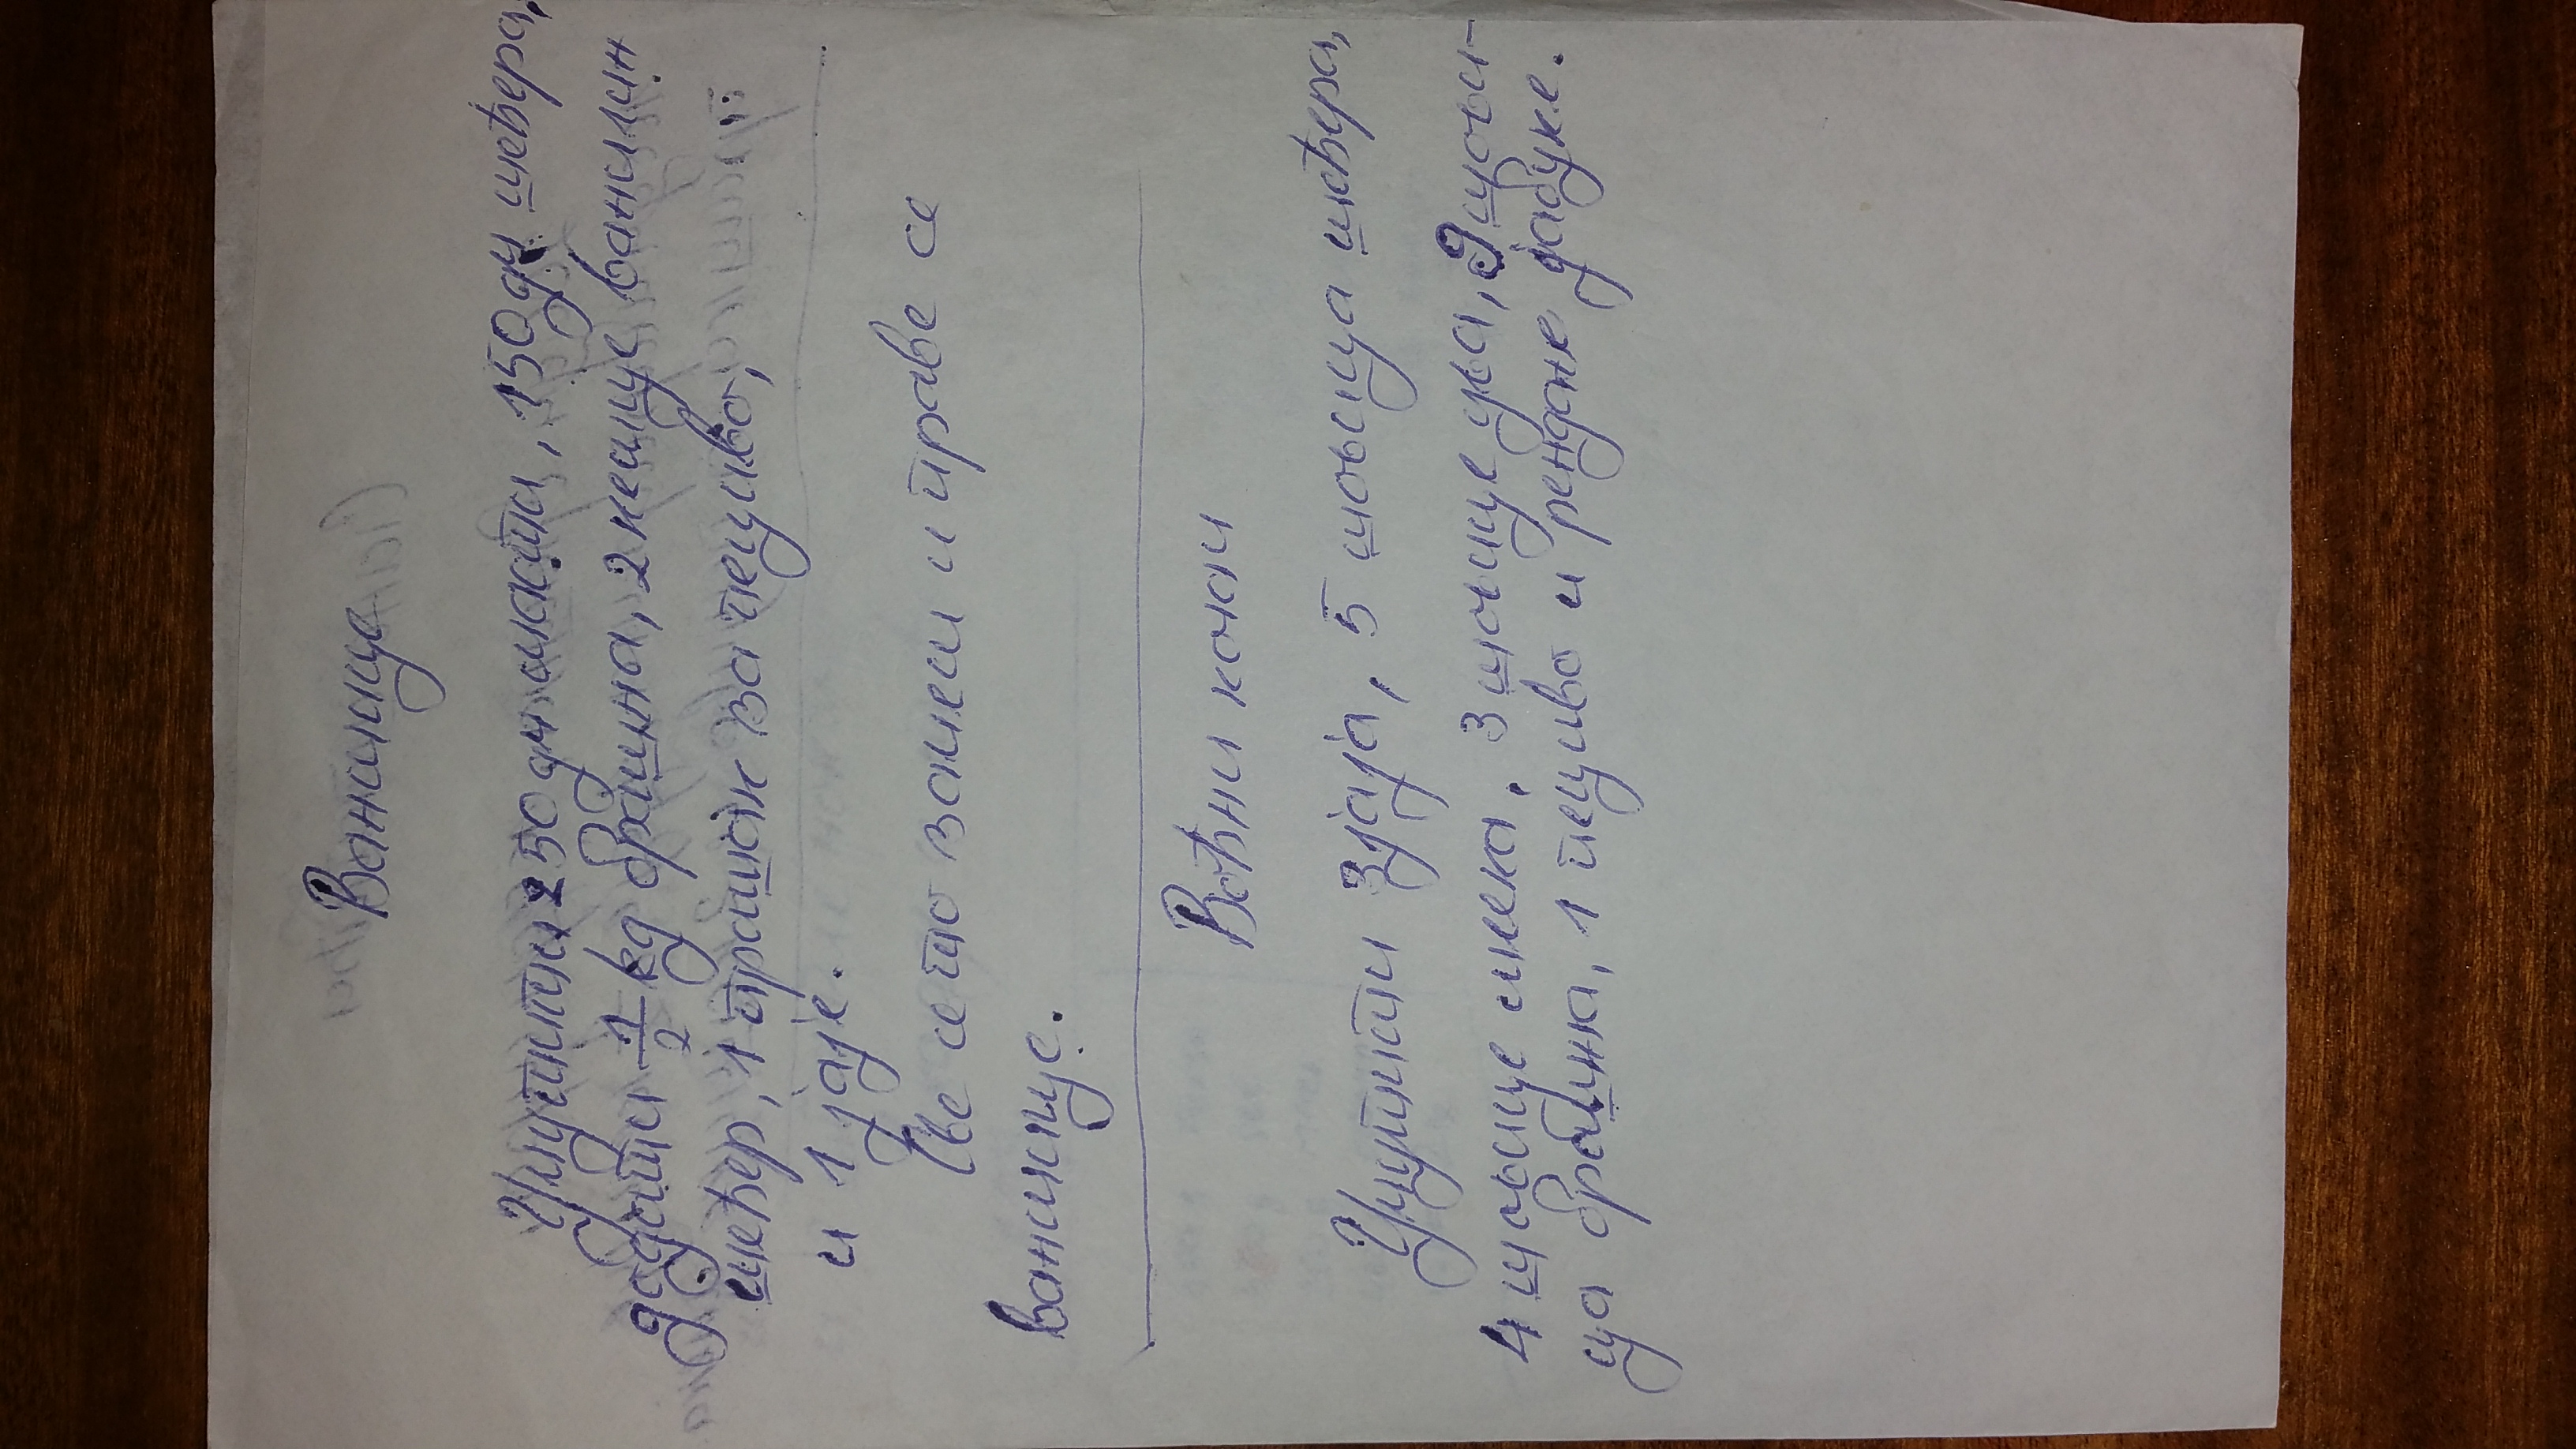 Ванилице
Улупати 250 дг масти, 150 дг шећера,
додати 1/2 kg брашна, 2 кесице ванилин
шећер, 1 прашак за пециво,
и 1 јаје.
Све се то замеси и праве се
ванилице.
Воћни колач
Улупати 3 јаја, 5 шољица шећера,
4 шољице млека, 3 шољице уља, 9 шољи-
ца брашна, 1 пециво и рендане јабуке.